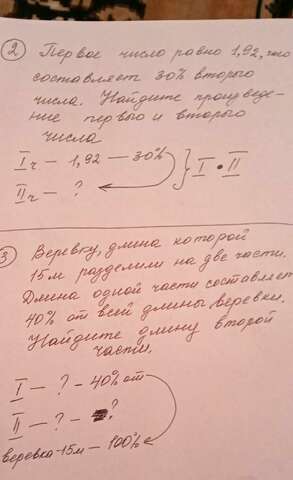 2 Первое число равно 1,92, что
составляет 30% второго
числа. Найдите произведе-
ние первого и второго
числа
I ч – 1,92 – 30% } I • II
II ч – ?
3 Веревку, длина которой
15м разделили на две части.
Длина одной части составляет
40% от всей длины веревки.
Найдите длину второй
части.
I – ? – 40% от
II – ? – ?
веревка – 15м – 100%